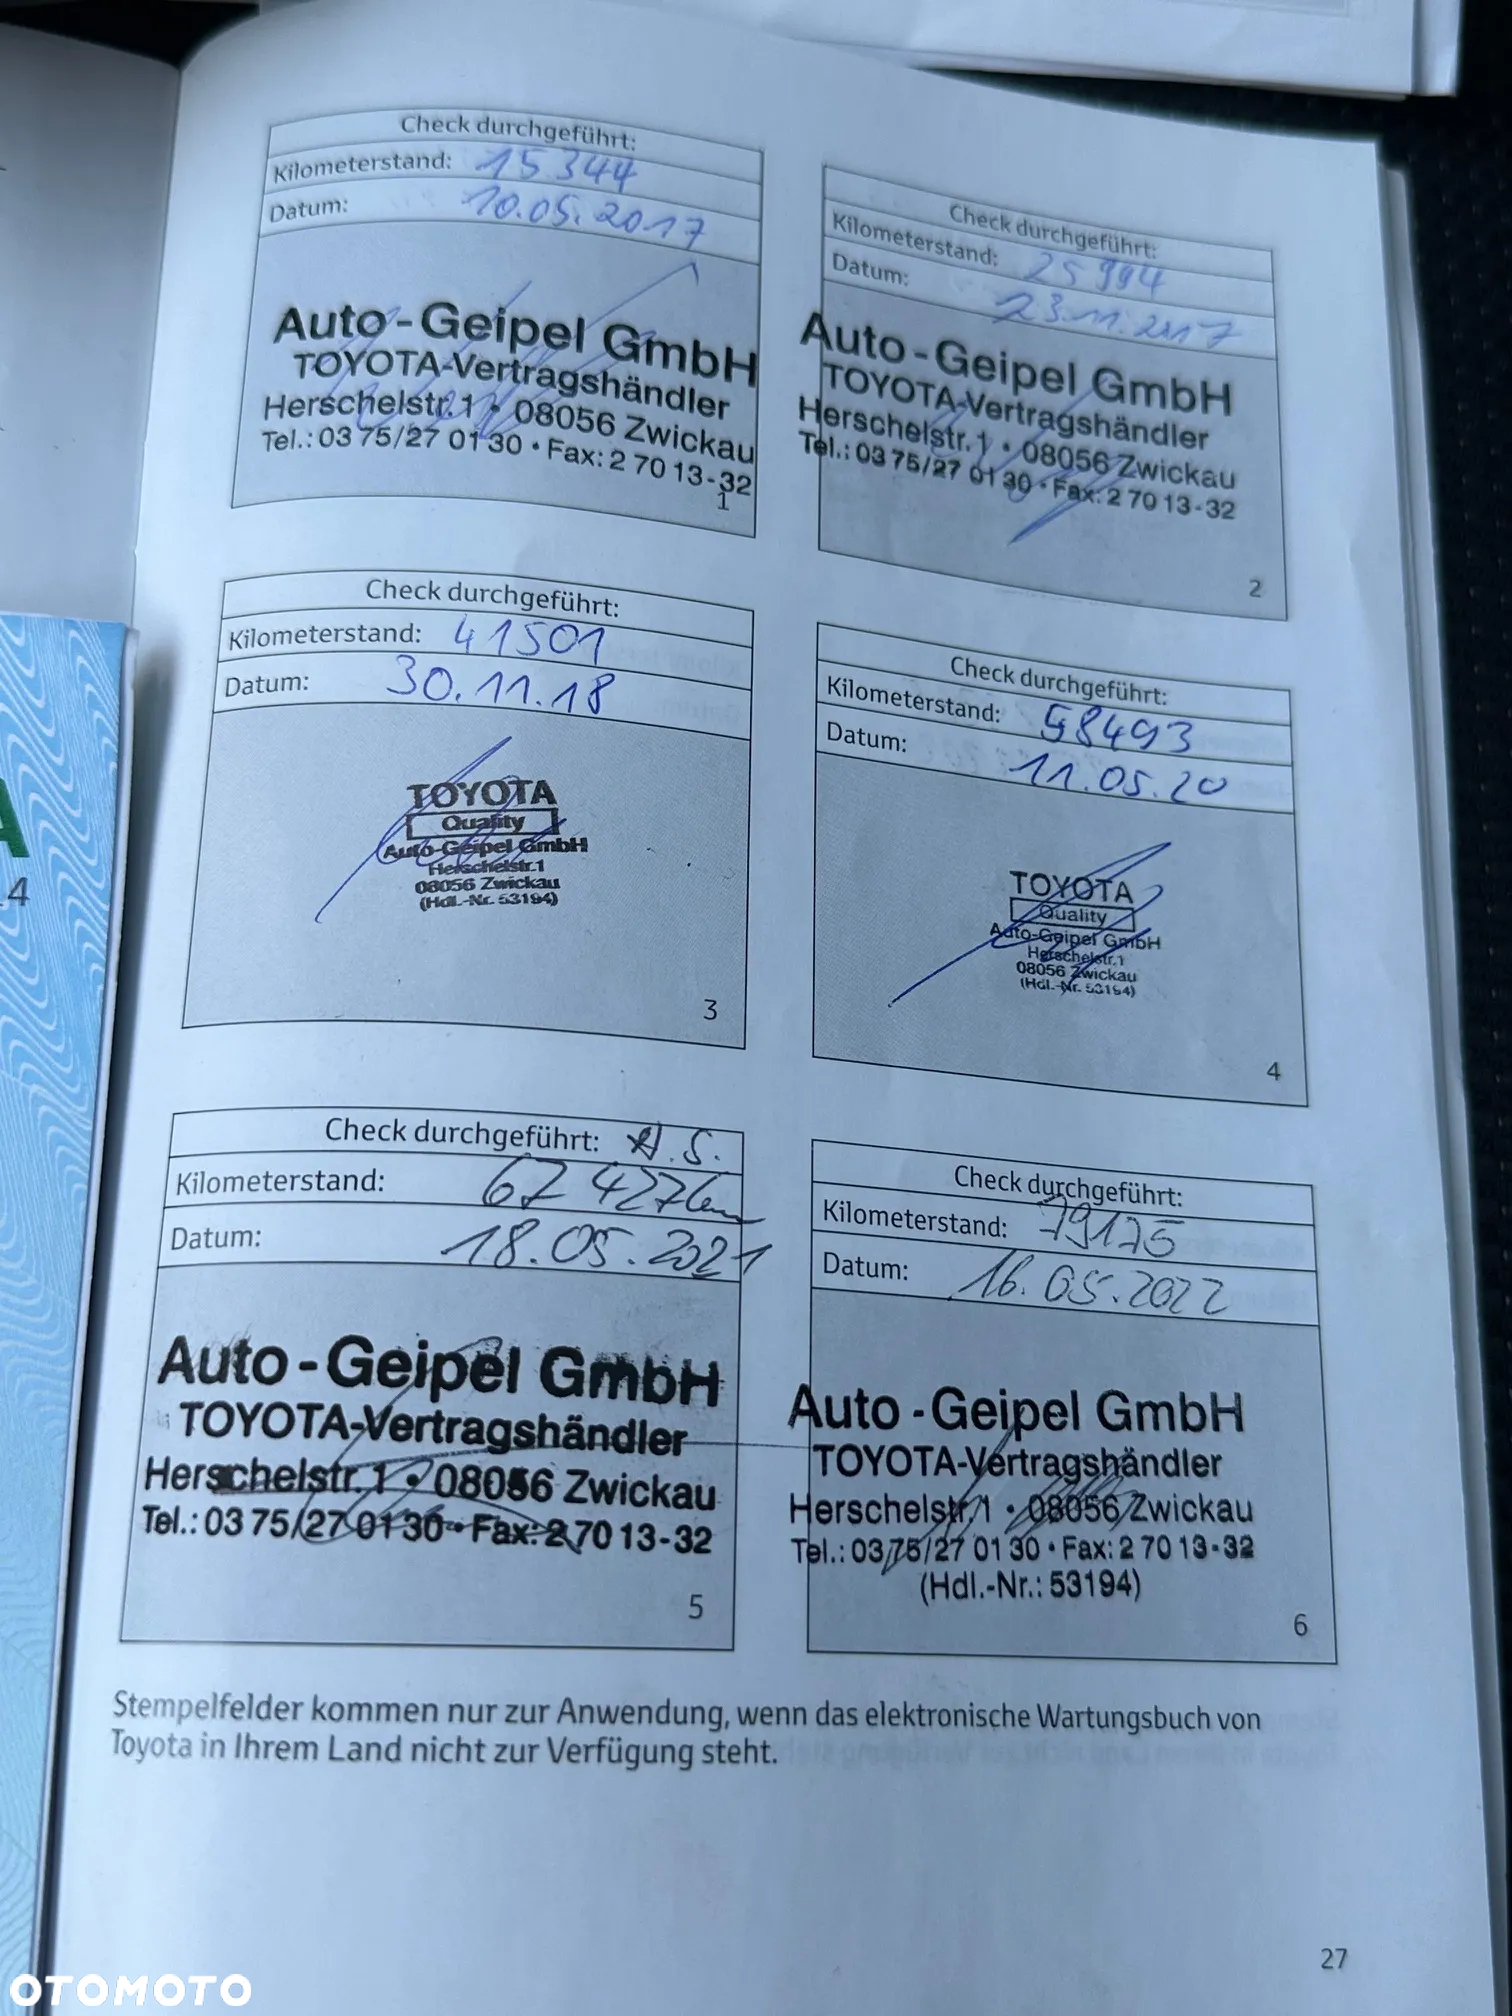 Check durchgeführt:
Kilometerstand: 15344
Datum: 10.05.2017
Auto-Geipel GmbH
TOYOTA-Vertragshändler
Herschelstr. 1 • 08056 Zwickau
Tel.: 03 75/27 01 30 • Fax: 2 70 13-32
1
Check durchgeführt:
Kilometerstand: 25994
Datum: 23.11.2017
Auto-Geipel GmbH
TOYOTA-Vertragshändler
Herschelstr. 1 • 08056 Zwickau
Tel.: 03 75/27 01 30 • Fax: 2 70 13-32
2
Check durchgeführt:
Kilometerstand: 41501
Datum: 30.11.18
TOYOTA
Quality
Auto-Geipel GmbH
Herschelstr.1
08056 Zwickau
(Hdl.-Nr. 53194)
3
Check durchgeführt:
Kilometerstand: 58493
Datum: 11.05.20
TOYOTA
Quality
Auto-Geipel GmbH
Herschelstr.1
08056 Zwickau
(Hdl.-Nr. 53194)
4
Check durchgeführt:
Kilometerstand: 67 427km
Datum: 18.05.2021
Auto-Geipel GmbH
TOYOTA-Vertragshändler
Herschelstr. 1 • 08056 Zwickau
Tel.: 03 75/27 01 30 • Fax: 2 70 13-32
5
Check durchgeführt:
Kilometerstand: 79175
Datum: 16.05.2022
Auto-Geipel GmbH
TOYOTA-Vertragshändler
Herschelstr. 1 • 08056 Zwickau
Tel.: 03 75/27 01 30 • Fax: 2 70 13-32
(Hdl.-Nr.: 53194)
6
Stempelfelder kommen nur zur Anwendung, wenn das elektronische Wartungsbuch von
Toyota in Ihrem Land nicht zur Verfügung steht.
27
OTOMOTO